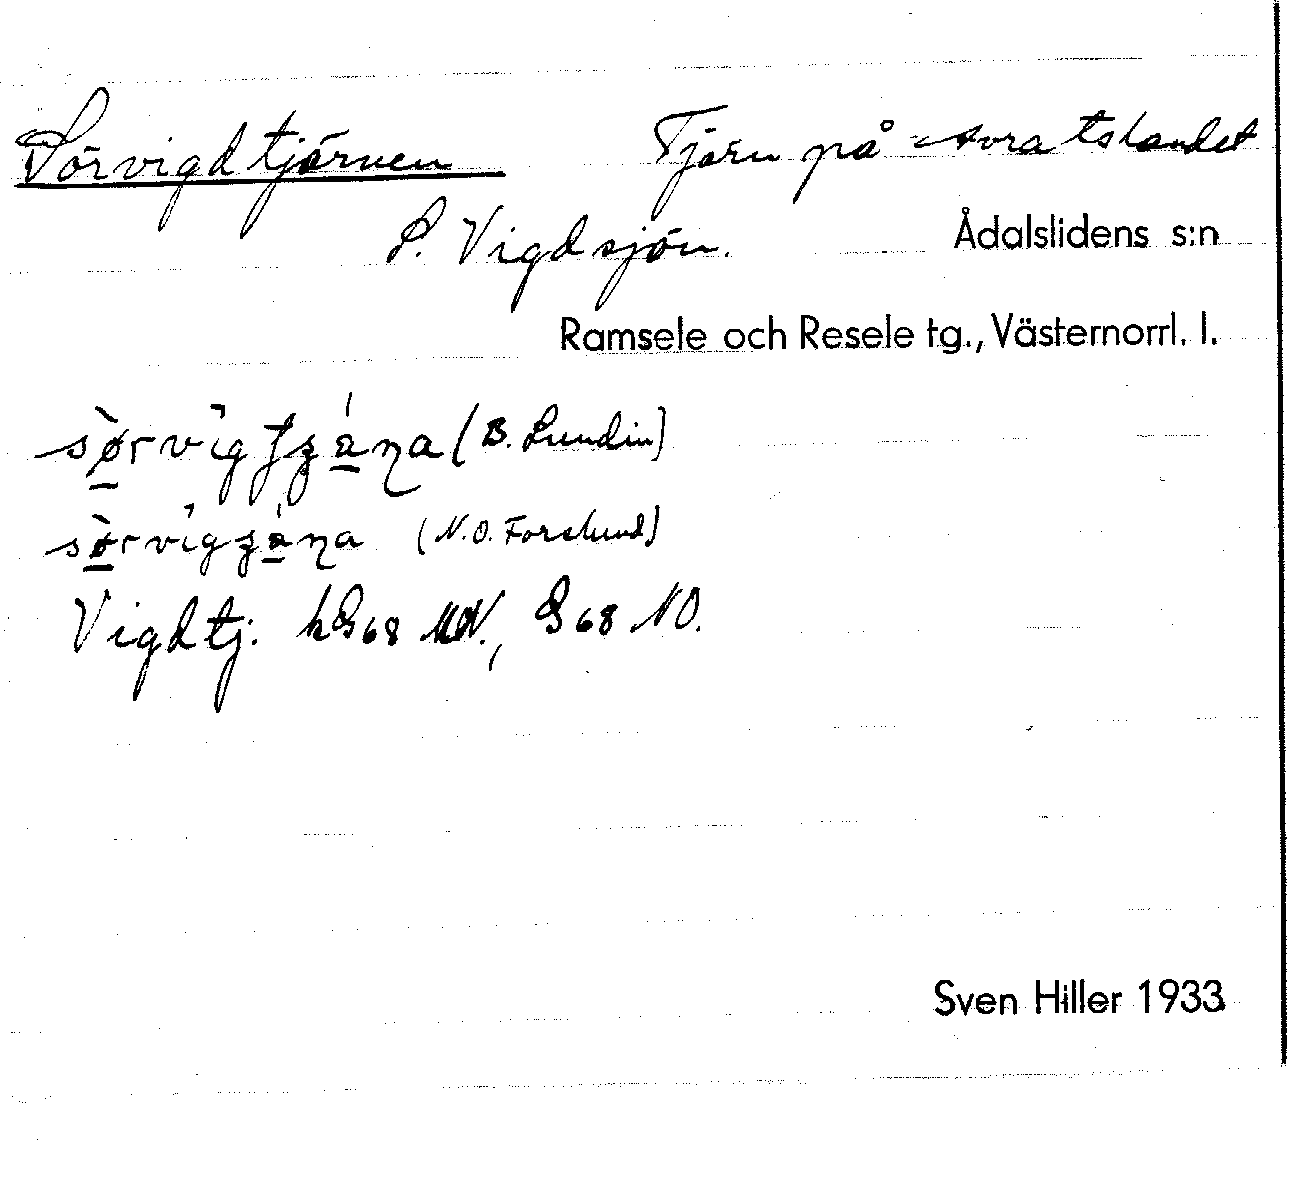 Sörvigdtjärnen Tjärn på Avratslandet
S. Vigdsjön. Ådalslidens s:n
Ramsele och Resele tg., Västernorrl. l.
(B. Lundin)
(N.O. Forslund)
Vigdtj. hG68 NV., G68 NO.
Sven Hiller 1933